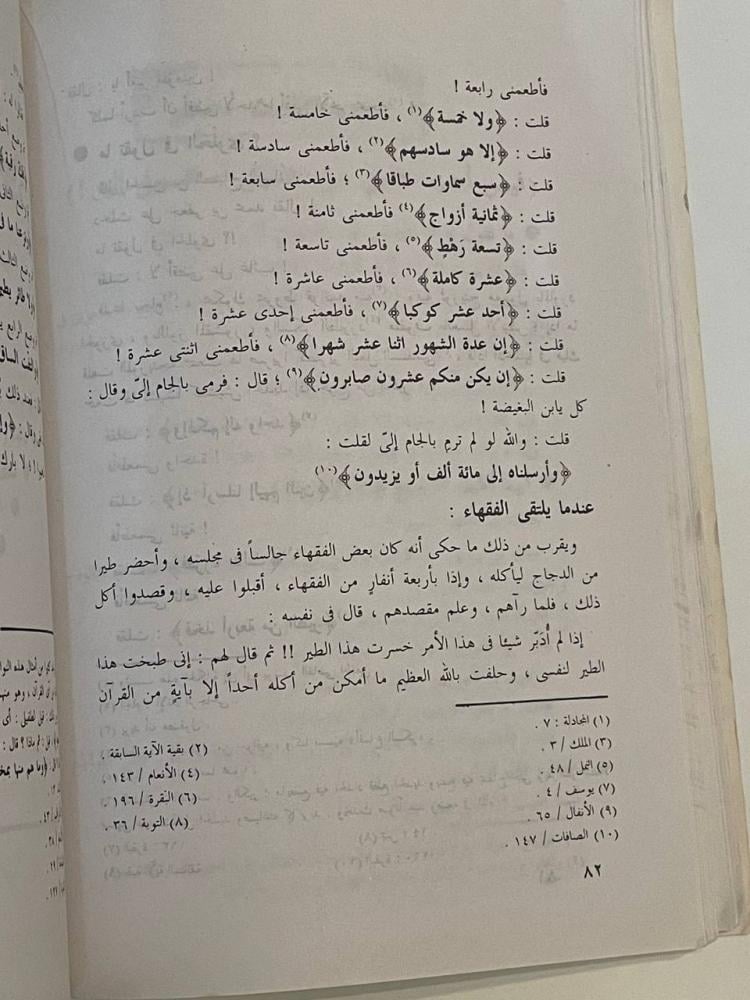 فأطعمنى رابعة !
قلت : ﴿ولا خمسة﴾(١) ، فأطعمنى خامسة !
قلت : ﴿إلا هو سادسهم﴾(٢) ، فأطعمنى سادسة !
قلت : ﴿سبع سماوات طباقا﴾(٣) ؛ فأطعمنى سابعة !
قلت : ﴿ثمانية أزواج﴾(٤) فأطعمنى ثامنة !
قلت : ﴿تسعة رَهْطٍ﴾(٥) ، فأطعمنى تاسعة !
قلت : ﴿عشرة كاملة﴾(٦) ، فأطعمنى عاشرة !
قلت : ﴿أحد عشر كوكبا﴾(٧) ، فأطعمنى إحدى عشرة !
قلت : ﴿إن عدة الشهور اثنا عشر شهرا﴾(٨) ، فأطعمنى اثنتى عشرة !
قلت : ﴿إن يكن منكم عشرون صابرون﴾(٩) ؛ قال : فرمى بالجام إلىّ وقال :
كل يابن البغيضة !
قلت : والله لو لم ترمِ بالجام إلىّ لقلت :
﴿وأرسلناه إلى مائة ألف أو يزيدون﴾(١٠)
عندما يلتقى الفقهاء :
ويقرب من ذلك ما حكى أنه كان بعض الفقهاء جالساً فى مجلسه ، وأحضر طيرا
من الدجاج ليأكله ، وإذا بأربعة أنفارٍ من الفقهاء ، أقبلوا عليه ، وقصدوا أكل
ذلك ، فلما رآهم ، وعلم مقصدهم ، قال فى نفسه :
إذا لم أُدَبّر شيئا فى هذا الأمر خسرت هذا الطير !! ثم قال لهم : إنى طبخت هذا
الطير لنفسى ، وحلفت بالله العظيم ما أمكن من أكله أحداً إلا بآيةٍ من القرآن
(١) المجادلة : ٧ .
(٢) بقية الآية السابقة .
(٣) الملك / ٣ .
(٤) الأنعام / ١٤٣ .
(٥) النمل / ٤٨ .
(٦) البقرة / ١٩٦ .
(٧) يوسف / ٤ .
(٨) التوبة / ٣٦ .
(٩) الأنفال / ٦٥ .
(١٠) الصافات / ١٤٧ .
٨٢